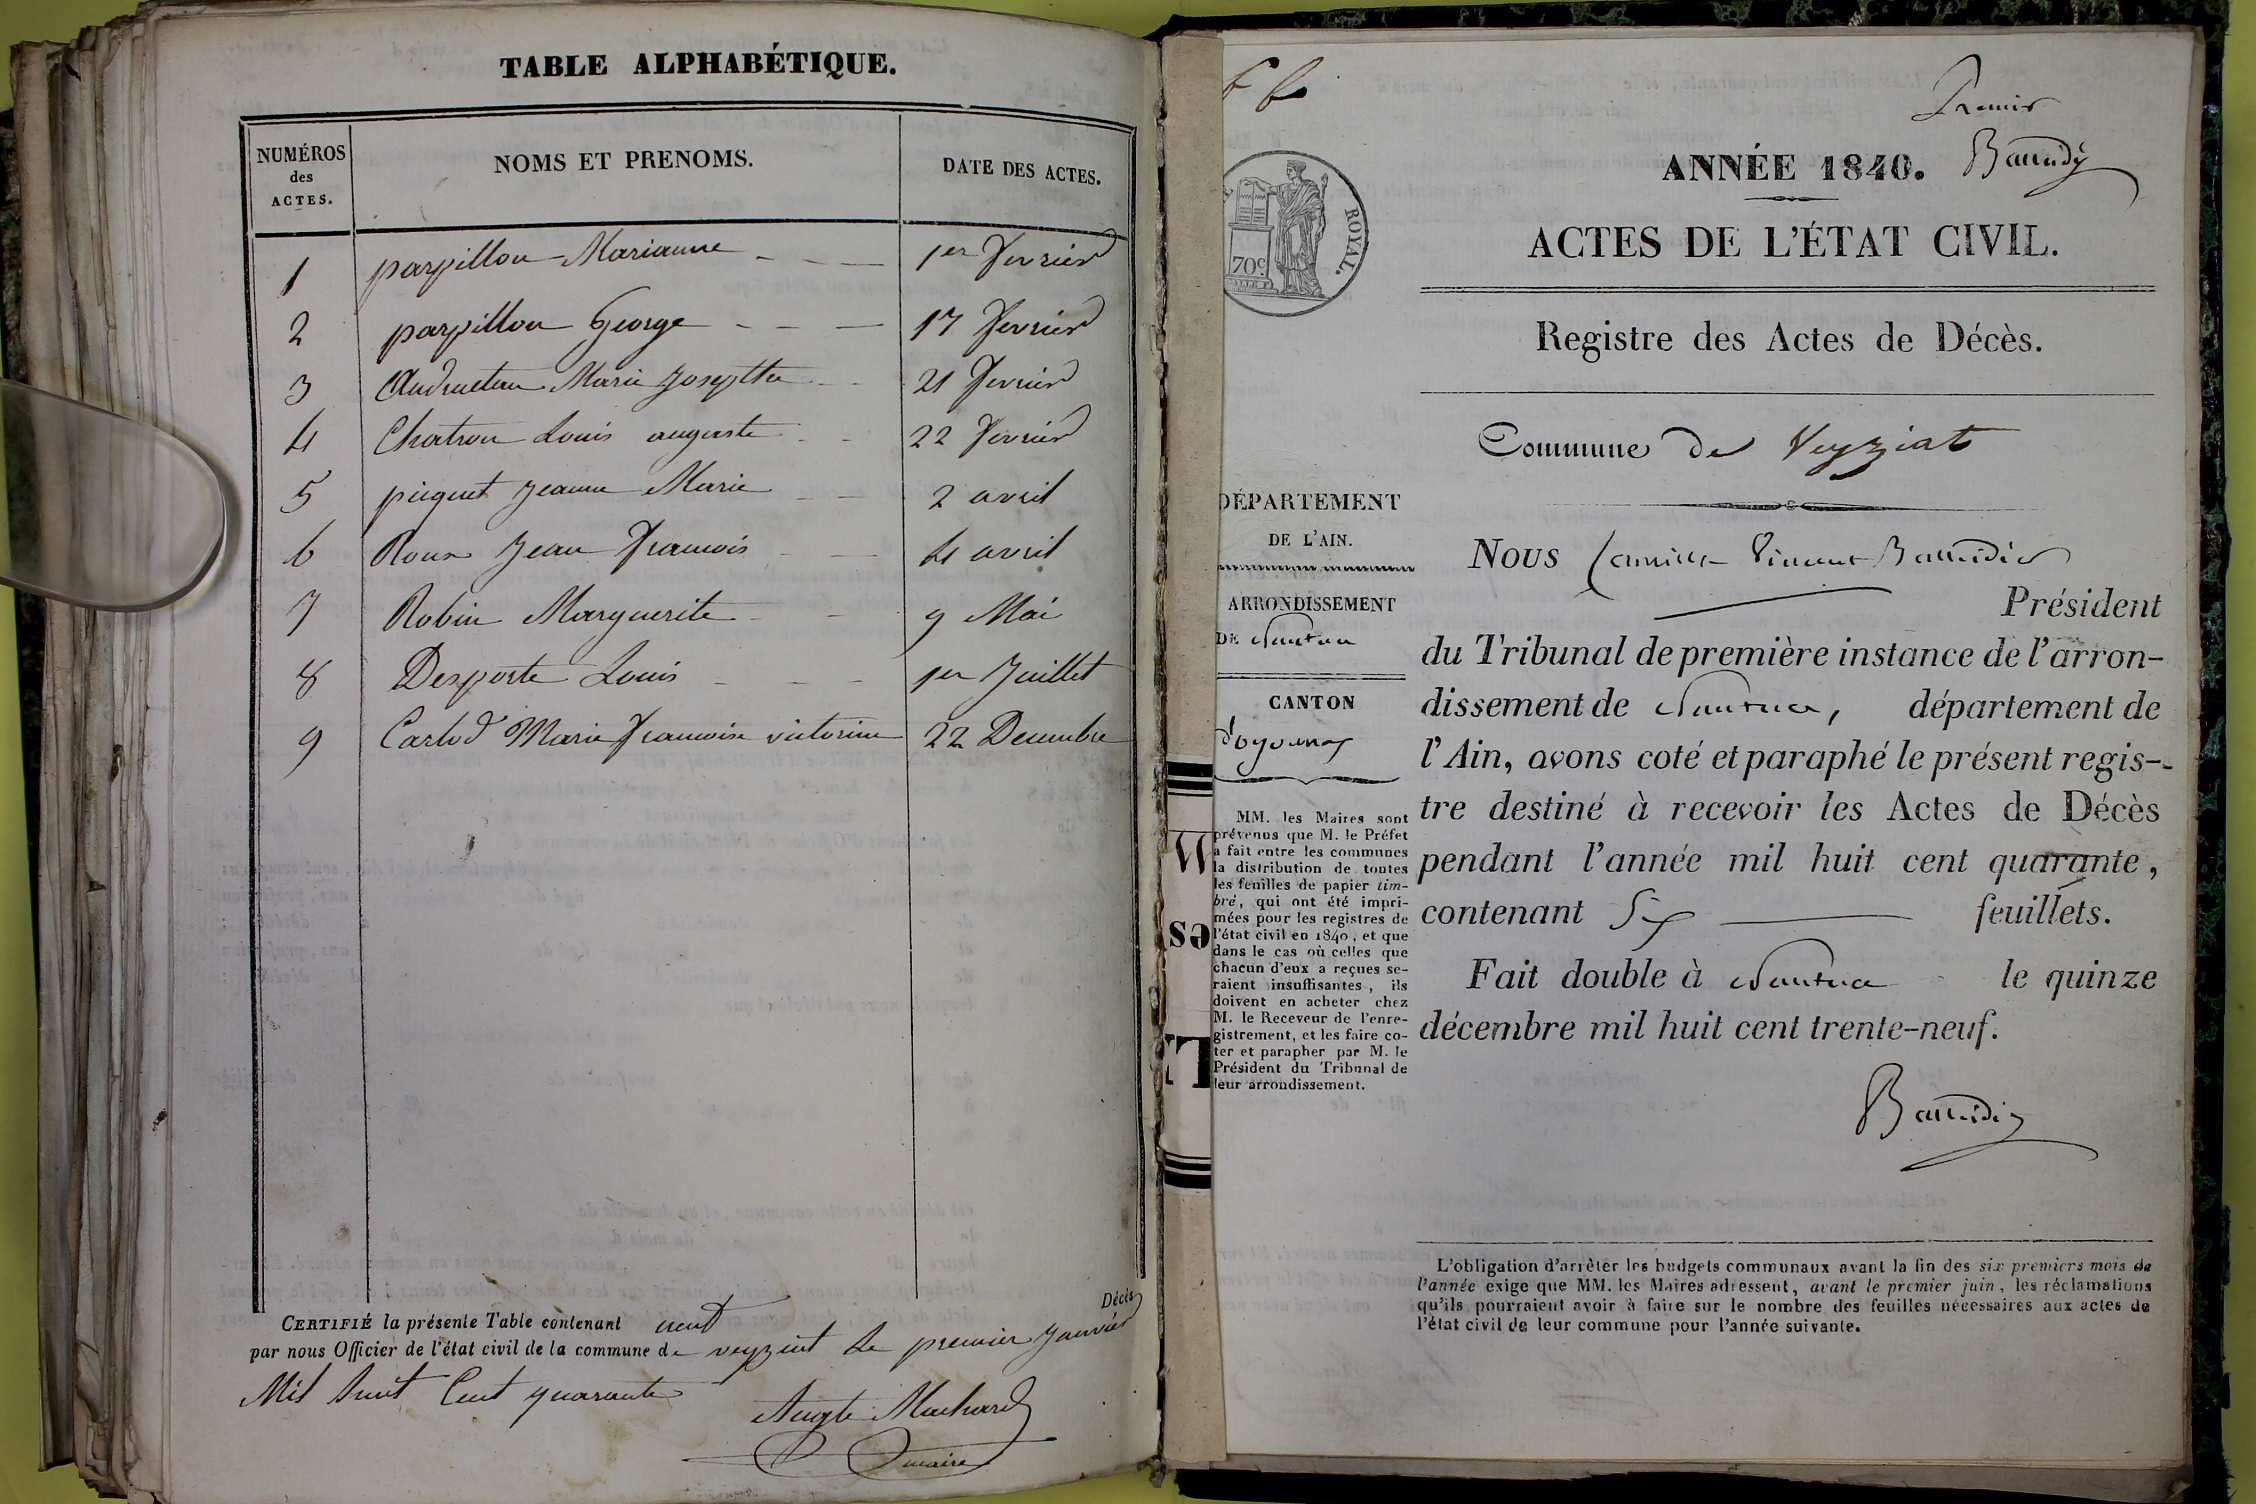 TABLE ALPHABÉTIQUE.
NUMÉROS des ACTES.
NOMS ET PRENOMS.
DATE DES ACTES.
1 parpillon Marianne 1er fevrier
2 parpillon George 17 fevrier
3 Marie Josephte 21 fevrier
4 Chatron Louis auguste 22 fevrier
5 piquet Jeanne Marie 2 avril
6 Roux Jean francois 4 avril
7 Robin Marguerite 9 Mai
8 Desporte Louis 1er Juillet
9 Carlod Marie francoise victorine 22 Decembre
Décès
CERTIFIÉ la présente Table contenant neuf
par nous Officier de l'état civil de la commune de veyziat Le premier Janvier
Mil huit Cent quarante
Augte Machard
maire
Premier
ROYAL.
70c
ANNÉE 1840.
ACTES DE L'ÉTAT CIVIL.
Registre des Actes de Décès.
Commune de Veyziat
DÉPARTEMENT
DE L'AIN.
ARRONDISSEMENT
DE Nantua
CANTON
d'oyonnax
MM. les Maires sont
prévenus que M. le Préfet
a fait entre les communes
la distribution de toutes
les feuilles de papier tim-
bré, qui ont été impri-
mées pour les registres de
l'état civil en 1840, et que
dans le cas où celles que
chacun d'eux a reçues se-
raient insuffisantes, ils
doivent en acheter chez
M. le Receveur de l'enre-
gistrement, et les faire co-
ter et parapher par M. le
Président du Tribunal de
leur arrondissement.
NOUS Camille Vincent Baudier
Président
du Tribunal de première instance de l'arron-
dissement de Nantua, département de
l'Ain, avons coté et paraphé le présent regis-
tre destiné à recevoir les Actes de Décès
pendant l'année mil huit cent quarante,
contenant Six feuillets.
Fait double à Nantua le quinze
décembre mil huit cent trente-neuf.
L'obligation d'arrêter les budgets communaux avant la fin des six premiers mois de
l'année exige que MM. les Maires adressent, avant le premier juin, les réclamations
qu'ils pourraient avoir à faire sur le nombre des feuilles nécessaires aux actes de
l'état civil de leur commune pour l'année suivante.